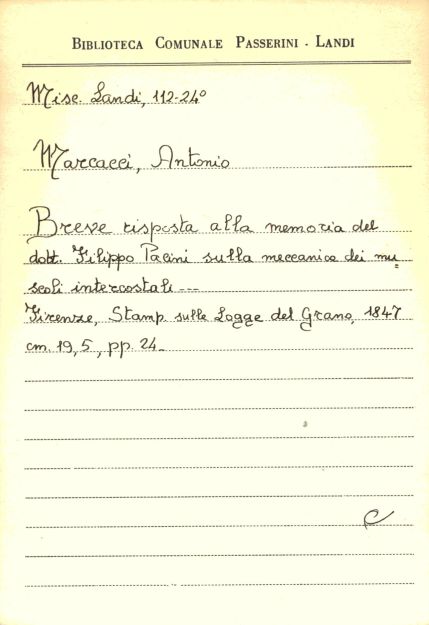 BIBLIOTECA COMUNALE PASSERINI - LANDI
Misc. Landi, 112-24°
Marcacci, Antonio
Breve risposta alla memoria del
dott. Filippo Pacini sulla meccanica dei mu=
scoli intercostali ---
Firenze, Stamp. sulle Logge del Grano, 1847
cm. 19,5, pp. 24_
C